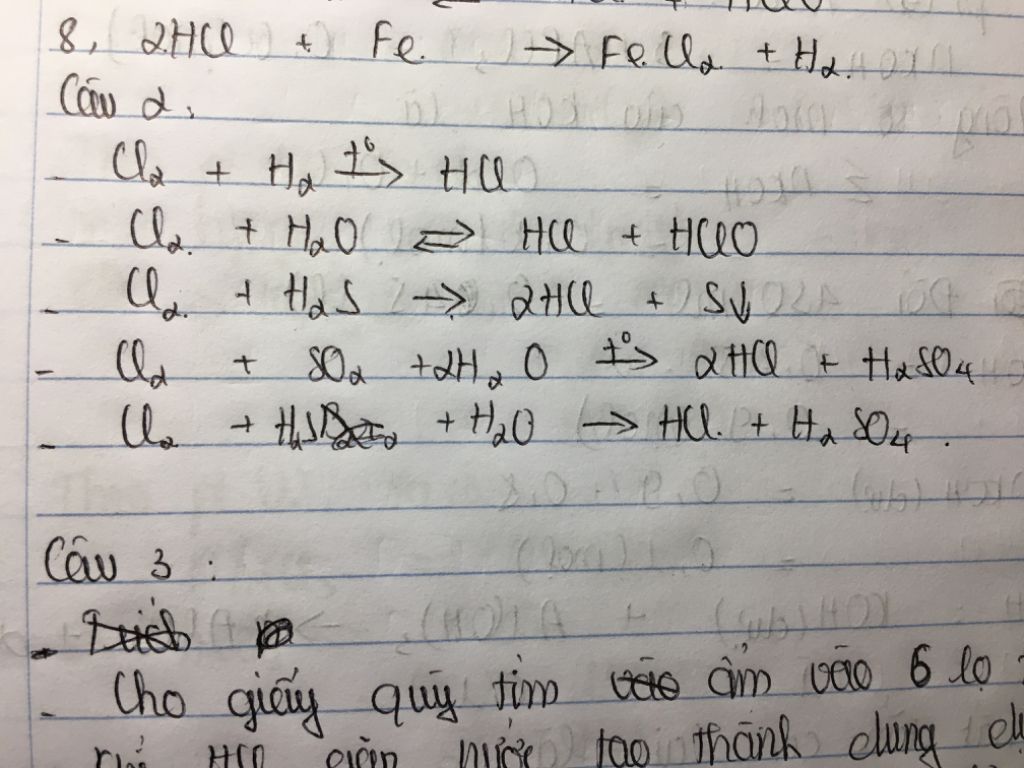 8, 2HCl + Fe. → FeCl2 + H2.
Câu 2:
- Cl2 + H2 t°→ HCl
- Cl2 + H2O ⇌ HCl + HClO
- Cl2 + H2S → 2HCl + S↓
- Cl2 + SO2 + 2H2O t°→ 2HCl + H2SO4
- Cl2 + H2S + H2O → HCl + H2SO4.
Câu 3 :
- Cho giấy quỳ tím ẩm vào 6 lọ
khí HCl gặp nước tạo thành dung